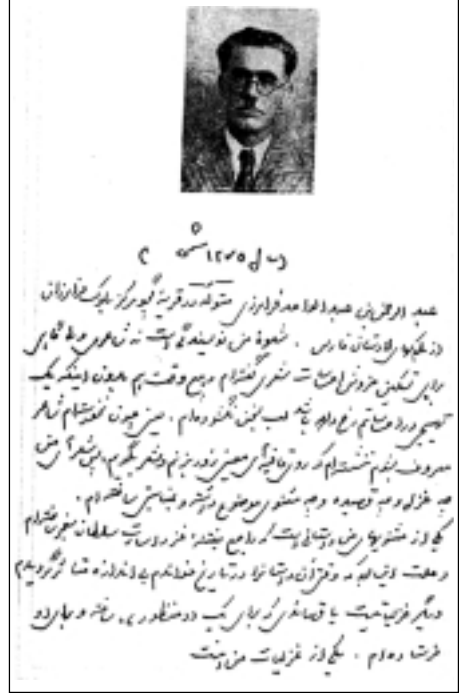 عبدالرحمن بن عبدالواحد فرامرزی متولد در قریه گچویه مرکز بلوک فرامرزان
از بلوکهای لارستان فارس. شیوه من نویسندگی است نه شاعری ولی گاهی
برای تسکین خروش احساسات شعری گفته‌ام و هیچ وقت هم بدون اینکه یک
تهییجی در احساساتم رخ داده باشد لب به سخن نگشوده‌ام. یعنی چون نخواسته‌ام شاعر
معروف بشوم ننشسته‌ام که روی قافیه‌ای معینی زور بزنم و شعر بگویم، پس شعرهای من
چه غزل و چه قصیده و چه مثنوی موضوع داشته و بمناسبتی ساخته‌ام.
یکی از مثنویهای من داستانی است که راجع بفتنه غز و اسارت سلطان سنجر گفته‌ام
و علت این بود که وقتی آن داستان را در تاریخ خواندم بی اندازه متأثر گردیدم
دیگر غزلیات یا قصائدی که برای یک دو منظوری ساخته و بجای دو
فرستاده‌ام. یکی از غزلیات من اینست